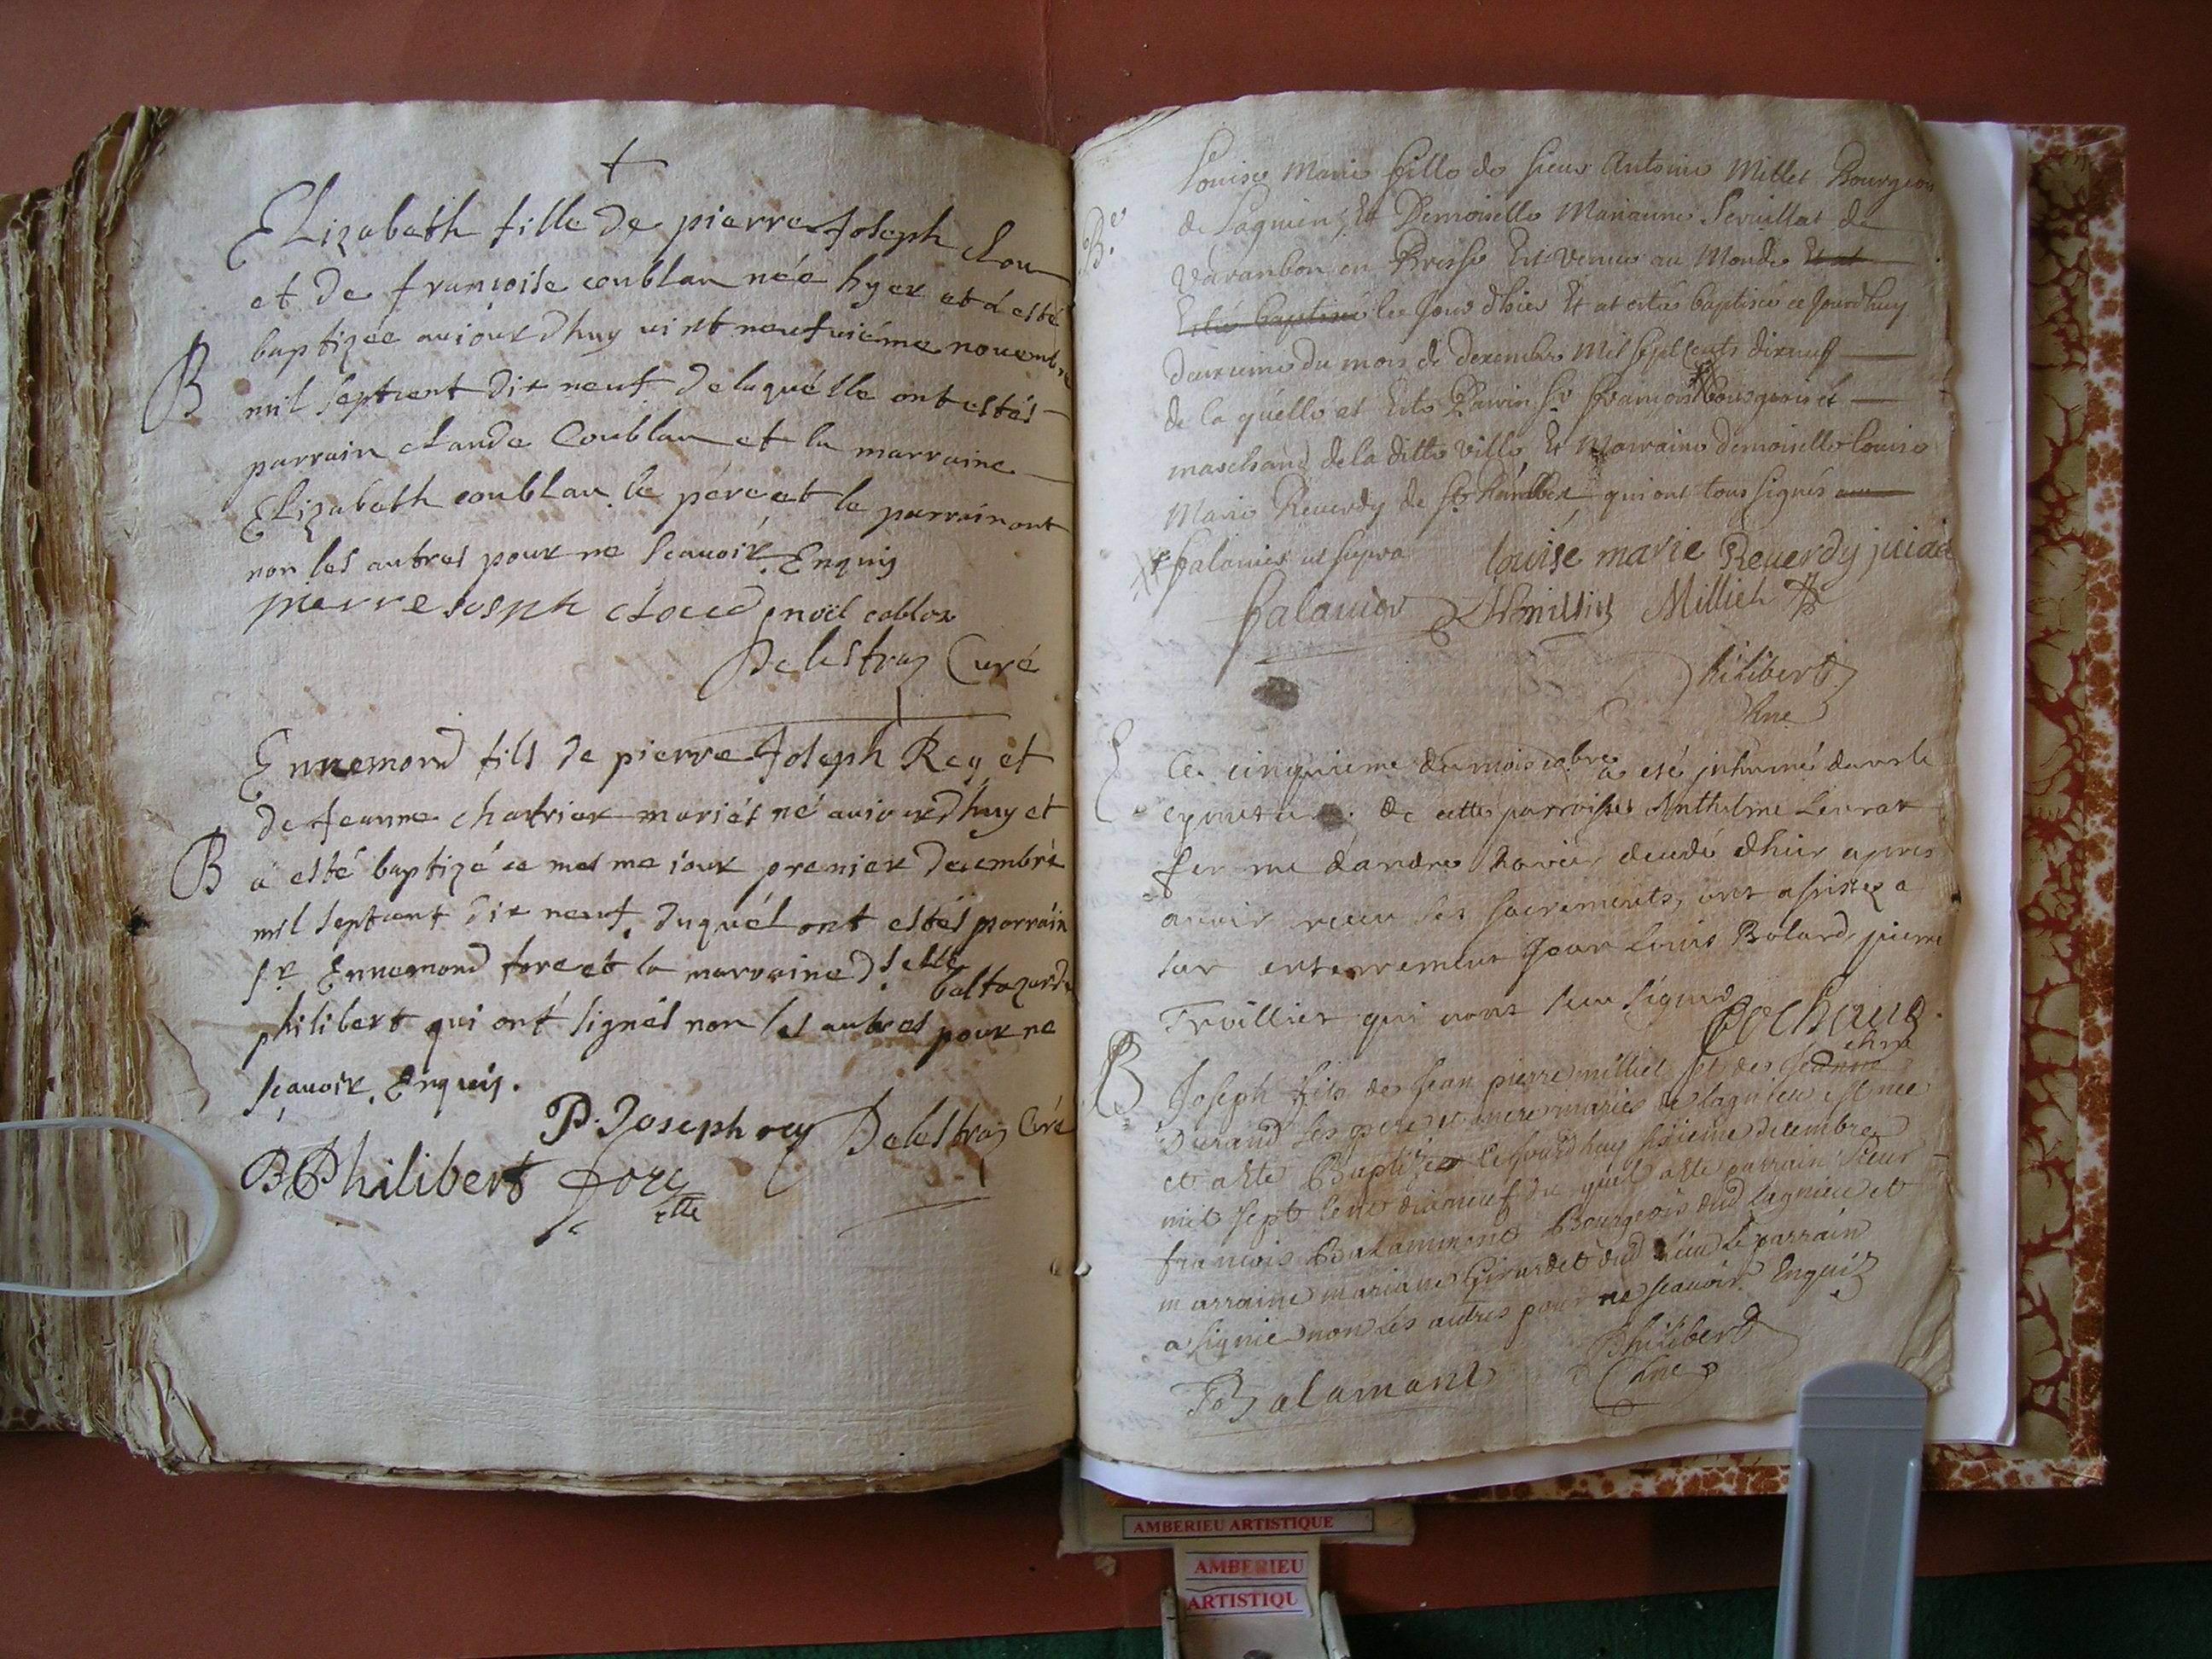 Elizabeth fille de pierre Joseph clou
et de françoise coublan née hyer et a esté
baptizée aujourdhuy vint neufuiéme novembre
B
mil septcent dix neuf de laquélle ont estés
parrain claude Coublan et la marraine
Elizabeth coublan le pére et le parrain ont
non les autres pour ne scauoir. Enquis
pierre Josph cloud noël coblan
Delestraz Curé
Ennemond fils de pierre Joseph Rey et
de Jeanne chatriar mariés né aujourdhuy et
B
a esté baptizé ce mesme jour premier décembre
mil septcent dix neuf, duquél ont estés parrain
Sr Ennemond fore et la marraine dlelle baltazarde
philibert qui ont signés non les autres pour ne
scauoir. Enquis.
P. Joseph rey Delestraz Curé
B Philibert
Louise Marie fille de sieur Antoine Millet Bourgeois
de Lagnieu, Et Demoiselle Marianne Seruillat de
B.
Varanbon en Bresse Est venue au Monde Et at
Esté baptisé le Jour dhier Et at esté baptisée ce Jourdhuy
deuxieme du mois de decembre Mil sept cents dixneuf
de la quelle at Esté Parrin Sr francois bourgeois et
marchand de la ditte ville Et Marraine demoiselle Louise
Marie Reuerdy de St Rambert qui ont tous signés
+ falauier ut supra louise marie Reuerdy
falauier Millieh
Philibert
Ce cinquieme du mois xbre a esté inhumé dans le
de cette parroisse Anthelme Leurat
decedé dhier apres
auoir receu ses sacrements, ont assistez a
son enterrement Jean Louis Bolard, pierre
Truillier qui nont sceu signer
B
Joseph fils de Jean pierre milliet et de Jeanne
Durand ses pere et mere mariés de lagnieu est née
et a esté Baptizé ce Jourdhuy sixieme decembre
mil sept cent dixneuf du quel a esté parrain sieur
francois Balamant Bourgeois dud lagnieu et
marraine mariane Girardet dud lieu le parrain
a signé non les autres pour ne scauoir Enquis
Philibert
Balamant
AMBERIEU ARTISTIQUE
AMBERIEU
ARTISTIQU